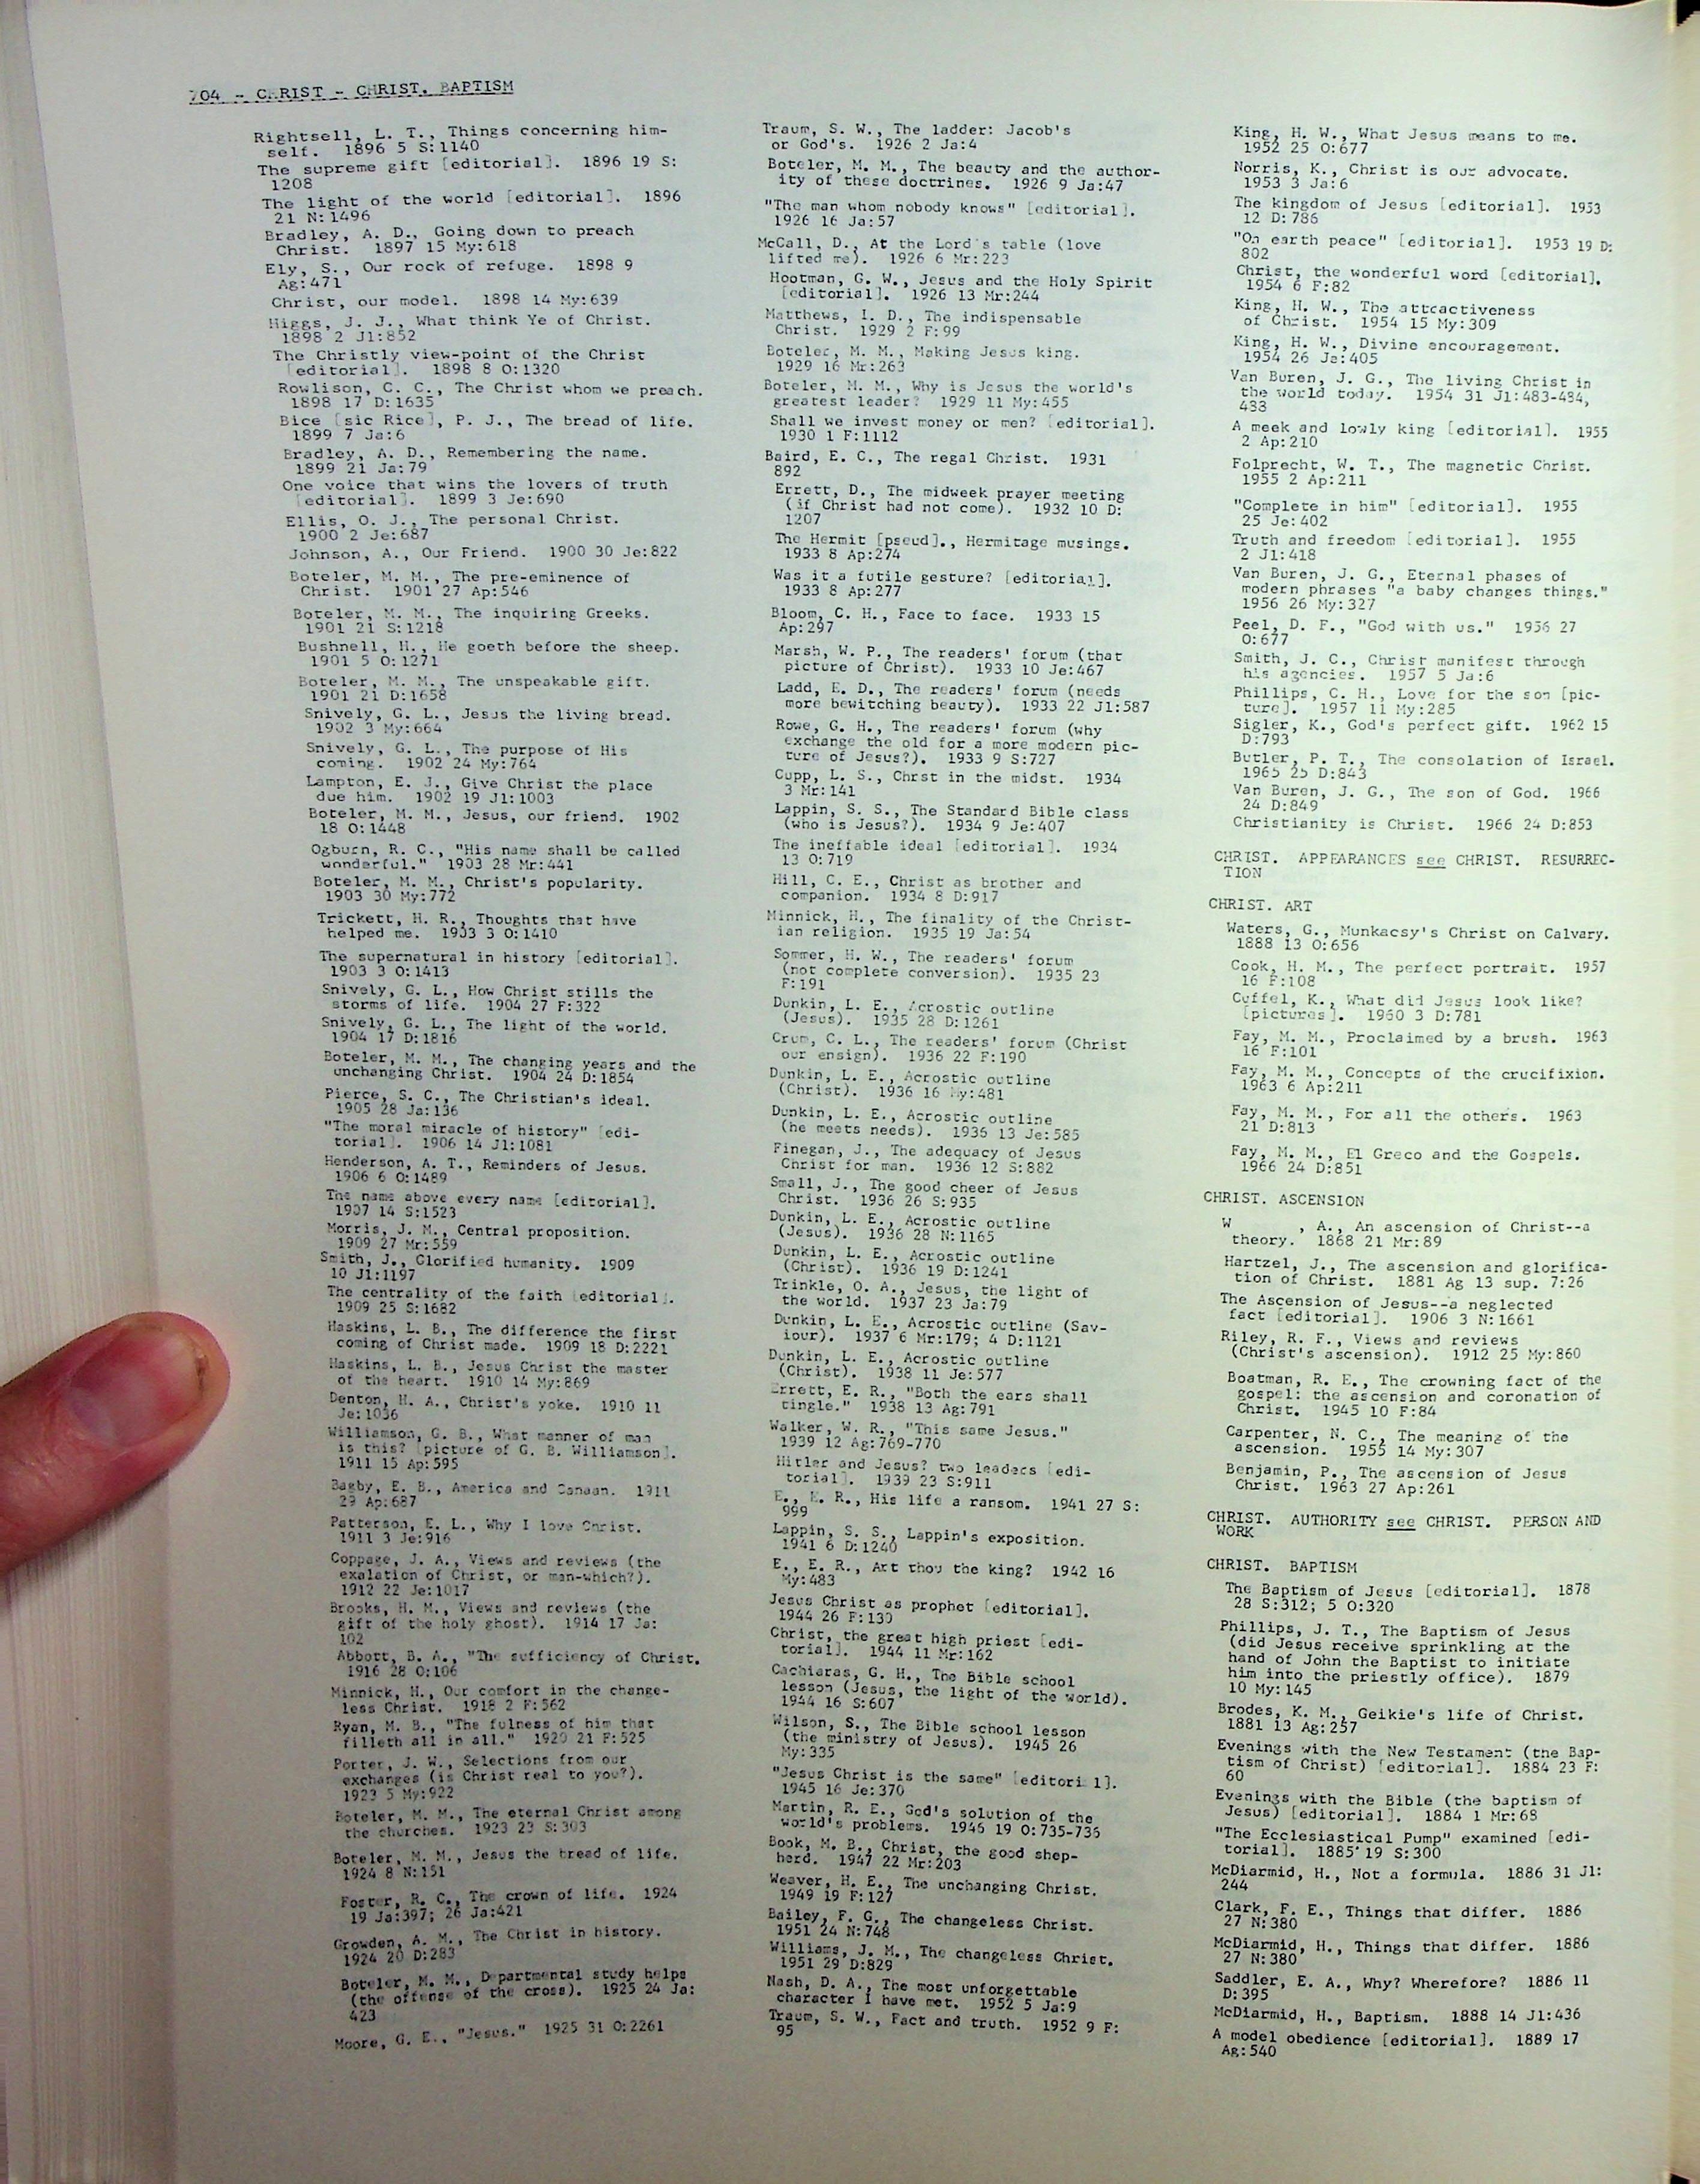 704 - CHRIST - CHRIST. BAPTISM
Rightsell, L. T., Things concerning him-
self. 1896 5 S:1140
The supreme gift [editorial]. 1896 19 S:
1208
The light of the world [editorial]. 1896
21 N:1496
Bradley, A. D., Going down to preach
Christ. 1897 15 My:618
Ely, S., Our rock of refuge. 1898 9
Ag:471
Christ, our model. 1898 14 My:639
Higgs, J. J., What think Ye of Christ.
1898 2 J1:852
The Christly view-point of the Christ
[editorial]. 1898 8 O:1320
Rowlison, C. C., The Christ whom we preach.
1898 17 D:1635
Bice [sic Rice], P. J., The bread of life.
1899 7 Ja:6
Bradley, A. D., Remembering the name.
1899 21 Ja:79
One voice that wins the lovers of truth
[editorial]. 1899 3 Je:690
Ellis, O. J., The personal Christ.
1900 2 Je:687
Johnson, A., Our Friend. 1900 30 Je:822
Boteler, M. M., The pre-eminence of
Christ. 1901 27 Ap:546
Boteler, M. M., The inquiring Greeks.
1901 21 S:1218
Bushnell, H., He goeth before the sheep.
1901 5 O:1271
Boteler, M. M., The unspeakable gift.
1901 21 D:1658
Snively, G. L., Jesus the living bread.
1902 3 My:664
Snively, G. L., The purpose of His
coming. 1902 24 My:764
Lampton, E. J., Give Christ the place
due him. 1902 19 J1:1003
Boteler, M. M., Jesus, our friend. 1902
18 O:1448
Ogburn, R. C., "His name shall be called
wonderful." 1903 28 Mr:441
Boteler, M. M., Christ's popularity.
1903 30 My:772
Trickett, H. R., Thoughts that have
helped me. 1903 3 O:1410
The supernatural in history [editorial].
1903 3 O:1413
Snively, G. L., How Christ stills the
storms of life. 1904 27 F:322
Snively, G. L., The light of the world.
1904 17 D:1816
Boteler, M. M., The changing years and the
unchanging Christ. 1904 24 D:1854
Pierce, S. C., The Christian's ideal.
1905 28 Ja:136
"The moral miracle of history" [edi-
torial]. 1906 14 J1:1081
Henderson, A. T., Reminders of Jesus.
1906 6 O:1489
The name above every name [editorial].
1907 14 S:1523
Morris, J. M., Central proposition.
1909 27 Mr:559
Smith, J., Glorified humanity. 1909
10 J1:1197
The centrality of the faith [editorial].
1909 25 S:1682
Haskins, L. B., The difference the first
coming of Christ made. 1909 18 D:2221
Haskins, L. B., Jesus Christ the master
of the heart. 1910 14 My:869
Denton, H. A., Christ's yoke. 1910 11
Je:1036
Williamson, G. B., What manner of man
is this? [picture of G. B. Williamson].
1911 15 Ap:595
Bagby, E. B., America and Canaan. 1911
29 Ap:687
Patterson, E. L., Why I love Christ.
1911 3 Je:916
Coppage, J. A., Views and reviews (the
exalation of Christ, or man-which?).
1912 22 Je:1017
Brooks, H. M., Views and reviews (the
gift of the holy ghost). 1914 17 Ja:
102
Abbott, B. A., "The sufficiency of Christ.
1916 28 O:106
Minnick, H., Our comfort in the change-
less Christ. 1918 2 F:562
Ryan, M. B., "The fulness of him that
filleth all in all." 1920 21 F:525
Porter, J. W., Selections from our
exchanges (is Christ real to you?).
1923 5 My:922
Boteler, M. M., The eternal Christ among
the churches. 1923 23 S:303
Boteler, M. M., Jesus the bread of life.
1924 8 N:151
Foster, R. C., The crown of life. 1924
19 Ja:397; 26 Ja:421
Growden, A. M., The Christ in history.
1924 20 D:283
Boteler, M. M., Departmental study helps
(the offense of the cross). 1925 24 Ja:
423
Moore, G. E., "Jesus." 1925 31 O:2261
Traum, S. W., The ladder: Jacob's
or God's. 1926 2 Ja:4
Boteler, M. M., The beauty and the author-
ity of these doctrines. 1926 9 Ja:47
"The man whom nobody knows" [editorial].
1926 16 Ja:57
McCall, D., At the Lord's table (love
lifted me). 1926 6 Mr:223
Hootman, G. W., Jesus and the Holy Spirit
[editorial]. 1926 13 Mr:244
Matthews, I. D., The indispensable
Christ. 1929 2 F:99
Boteler, M. M., Making Jesus king.
1929 16 Mr:263
Boteler, M. M., Why is Jesus the world's
greatest leader? 1929 11 My:455
Shall we invest money or men? [editorial].
1930 1 F:1112
Baird, E. C., The regal Christ. 1931
892
Errett, D., The midweek prayer meeting
(if Christ had not come). 1932 10 D:
1207
The Hermit [pseud]., Hermitage musings.
1933 8 Ap:274
Was it a futile gesture? [editorial].
1933 8 Ap:277
Bloom, C. H., Face to face. 1933 15
Ap:297
Marsh, W. P., The readers' forum (that
picture of Christ). 1933 10 Je:467
Ladd, E. D., The readers' forum (needs
more bewitching beauty). 1933 22 J1:587
Rowe, G. H., The readers' forum (why
exchange the old for a more modern pic-
ture of Jesus?). 1933 9 S:727
Cupp, L. S., Chrst in the midst. 1934
3 Mr:141
Lappin, S. S., The Standard Bible class
(who is Jesus?). 1934 9 Je:407
The ineffable ideal [editorial]. 1934
13 O:719
Hill, C. E., Christ as brother and
companion. 1934 8 D:917
Minnick, H., The finality of the Christ-
ian religion. 1935 19 Ja:54
Sommer, H. W., The readers' forum
(not complete conversion). 1935 23
F:191
Dunkin, L. E., Acrostic outline
(Jesus). 1935 28 D:1261
Crum, C. L., The readers' forum (Christ
our ensign). 1936 22 F:190
Dunkin, L. E., Acrostic outline
(Christ). 1936 16 My:481
Dunkin, L. E., Acrostic outline
(he meets needs). 1936 13 Je:585
Finegan, J., The adequacy of Jesus
Christ for man. 1936 12 S:882
Small, J., The good cheer of Jesus
Christ. 1936 26 S:935
Dunkin, L. E., Acrostic outline
(Jesus). 1936 28 N:1165
Dunkin, L. E., Acrostic outline
(Christ). 1936 19 D:1241
Trinkle, O. A., Jesus, the light of
the world. 1937 23 Ja:79
Dunkin, L. E., Acrostic outline (Sav-
iour). 1937 6 Mr:179; 4 D:1121
Dunkin, L. E., Acrostic outline
(Christ). 1938 11 Je:577
Errett, E. R., "Both the ears shall
tingle." 1938 13 Ag:791
Walker, W. R., "This same Jesus."
1939 12 Ag:769-770
Hitler and Jesus? two leaders [edi-
torial]. 1939 23 S:911
E., E. R., His life a ransom. 1941 27 S:
999
Lappin, S. S., Lappin's exposition.
1941 6 D:1240
E., E. R., Art thou the king? 1942 16
My:483
Jesus Christ as prophet [editorial].
1944 26 F:130
Christ, the great high priest [edi-
torial]. 1944 11 Mr:162
Cachiaras, G. H., The Bible school
lesson (Jesus, the light of the world).
1944 16 S:607
Wilson, S., The Bible school lesson
(the ministry of Jesus). 1945 26
My:335
"Jesus Christ is the same" [editori l].
1945 16 Je:370
Martin, R. E., God's solution of the
world's problems. 1946 19 O:735-736
Book, M. B., Christ, the good shep-
herd. 1947 22 Mr:203
Weaver, H. E., The unchanging Christ.
1949 19 F:127
Bailey, F. G., The changeless Christ.
1951 24 N:748
Williams, J. M., The changeless Christ.
1951 29 D:829
Nash, D. A., The most unforgettable
character I have met. 1952 5 Ja:9
Traum, S. W., Fact and truth. 1952 9 F:
95
King, H. W., What Jesus means to me.
1952 25 O:677
Norris, K., Christ is our advocate.
1953 3 Ja:6
The kingdom of Jesus [editorial]. 1953
12 D:786
"On earth peace" [editorial]. 1953 19 D:
802
Christ, the wonderful word [editorial].
1954 6 F:82
King, H. W., The attractiveness
of Christ. 1954 15 My:309
King, H. W., Divine encouragement.
1954 26 Je:405
Van Buren, J. G., The living Christ in
the world today. 1954 31 J1:483-484,
488
A meek and lowly king [editorial]. 1955
2 Ap:210
Folprecht, W. T., The magnetic Christ.
1955 2 Ap:211
"Complete in him" [editorial]. 1955
25 Je:402
Truth and freedom [editorial]. 1955
2 J1:418
Van Buren, J. G., Eternal phases of
modern phrases "a baby changes things."
1956 26 My:327
Peel, D. F., "God with us." 1956 27
O:677
Smith, J. C., Christ manifest through
his agencies. 1957 5 Ja:6
Phillips, C. H., Love for the son [pic-
ture]. 1957 11 My:285
Sigler, K., God's perfect gift. 1962 15
D:793
Butler, P. T., The consolation of Israel.
1965 25 D:843
Van Buren, J. G., The son of God. 1966
24 D:849
Christianity is Christ. 1966 24 D:853
CHRIST. APPEARANCES see CHRIST. RESURREC-
TION
CHRIST. ART
Waters, G., Munkacsy's Christ on Calvary.
1888 13 O:656
Cook, H. M., The perfect portrait. 1957
16 F:108
Cuffel, K., What did Jesus look like?
[pictures]. 1960 3 D:781
Fay, M. M., Proclaimed by a brush. 1963
16 F:101
Fay, M. M., Concepts of the crucifixion.
1963 6 Ap:211
Fay, M. M., For all the others. 1963
21 D:813
Fay, M. M., El Greco and the Gospels.
1966 24 D:851
CHRIST. ASCENSION
W , A., An ascension of Christ--a
theory. 1868 21 Mr:89
Hartzel, J., The ascension and glorifica-
tion of Christ. 1881 Ag 13 sup. 7:26
The Ascension of Jesus--a neglected
fact [editorial]. 1906 3 N:1661
Riley, R. F., Views and reviews
(Christ's ascension). 1912 25 My:860
Boatman, R. E., The crowning fact of the
gospel: the ascension and coronation of
Christ. 1945 10 F:84
Carpenter, N. C., The meaning of the
ascension. 1955 14 My:307
Benjamin, P., The ascension of Jesus
Christ. 1963 27 Ap:261
CHRIST. AUTHORITY see CHRIST. PERSON AND
WORK
CHRIST. BAPTISM
The Baptism of Jesus [editorial]. 1878
28 S:312; 5 O:320
Phillips, J. T., The Baptism of Jesus
(did Jesus receive sprinkling at the
hand of John the Baptist to initiate
him into the priestly office). 1879
10 My:145
Brodes, K. M., Geikie's life of Christ.
1881 13 Ag:257
Evenings with the New Testament (the Bap-
tism of Christ) [editorial]. 1884 23 F:
60
Evenings with the Bible (the baptism of
Jesus) [editorial]. 1884 1 Mr:68
"The Ecclesiastical Pump" examined [edi-
torial]. 1885 19 S:300
McDiarmid, H., Not a formula. 1886 31 J1:
244
Clark, F. E., Things that differ. 1886
27 N:380
McDiarmid, H., Things that differ. 1886
27 N:380
Saddler, E. A., Why? Wherefore? 1886 11
D:395
McDiarmid, H., Baptism. 1888 14 J1:436
A model obedience [editorial]. 1889 17
Ag:540